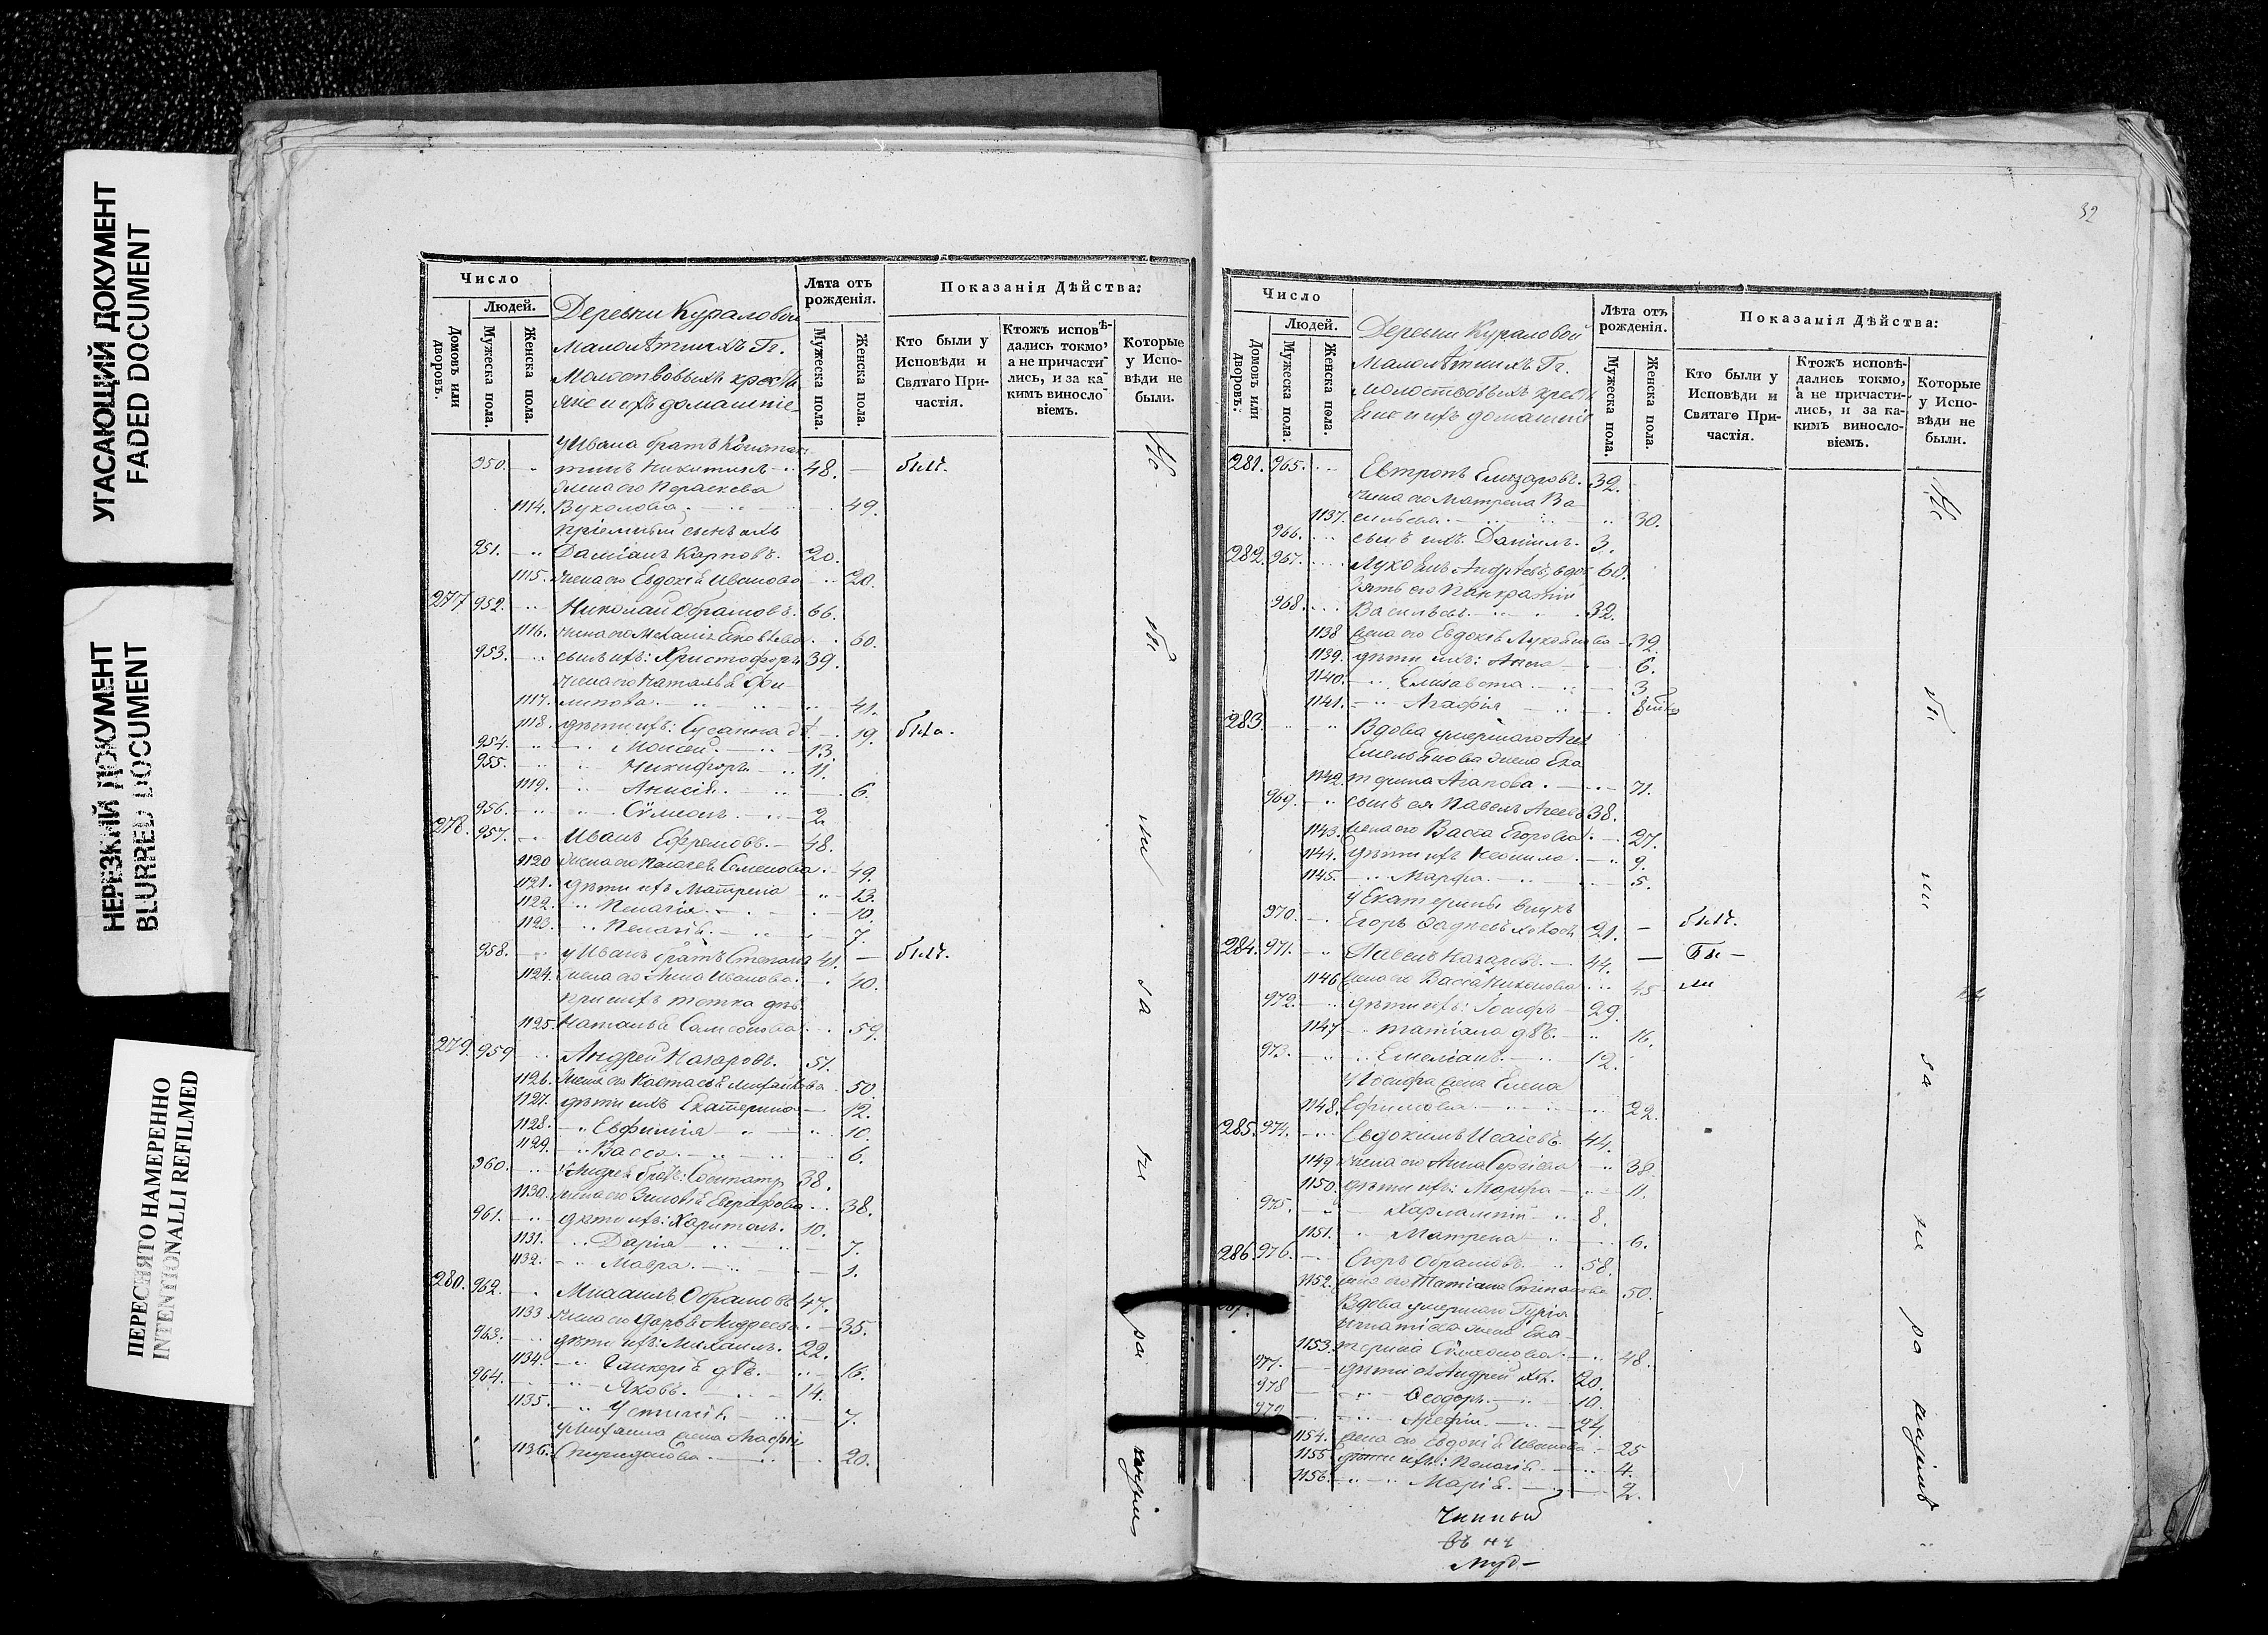 УГАСАЮЩИЙ ДОКУМЕНТ
FADED DOCUMENT
НЕРЕЗКИЙ ДОКУМЕНТ
BLURRED DOCUMENT
ПЕРЕСНЯТО НАМЕРЕННО
INTENTIONALLI REFILMED
Число
Людей.
Домовъ или дворовъ.
Мужеска пола.
Женска пола.
Деревни Кураловой
малолѣтнихъ Гг.
Молоствовыхъ крестьь
яне и ихъ домашніе
Лѣта отъ рожденія.
Мужеска пола.
Женска пола.
Показанія Дѣйства:
Кто были у Исповѣди и Святаго При-частія.
Ктожъ исповѣ-дались токмо, а не причасти-лись, и за ка-кимъ виносло-віемъ.
Которые у Испо-вѣди не были.
у Ивана братъ Констан
950. тинъ Никитинъ 48. — былъ.
жена его Параскева
1114. Вуколова 49.
пріемный сынъ ихъ
951. Даміанъ Карповъ. 20.
1115. жена его Евдокія Иванова 20.
277 952. Николай Абрамовъ. 66.
1116. жена его Меланія Яковлева 60.
953. сынъ ихъ: Христофоръ 39.
жена его Наталья Фи-
1117. липова 41.
1118. дѣти ихъ: Сусанна дѣ. 19. была.
954. Моисей 13.
955. Никифоръ 11.
1119. Анисія 6.
956. Сѵмеонъ 2.
278. 957. Иванъ Ефремовъ. 48.
1120 жена его Пелагея Семенова 49.
1121. дѣти ихъ Матрена 13.
1122. Пелагія 10.
1123. Пелагія 7.
958. у Ивана братъ Степанъ 41. — былъ.
1124. жена его Анна Иванова 40.
при нихъ тетка дѣв.
1125. Наталья Самсонова 59.
279. 959 Андрей Назаровъ. 51.
1126. жена его Настасья Михайлова 50.
1127. дѣти ихъ Екатерина 12.
1128. Евфимія 10.
1129. Васса 6.
960. у Андрея братъ: Сосипатр 38.
1130. жена его Зиновія Евграфова 38.
961. дѣти ихъ: Харитонъ. 10.
1131. Дарія 7.
1132. Мавра. 1.
280. 962. Михаилъ Абрамовъ 47.
1133 жена его Дарья Андреева 35.
963. дѣти ихъ: Михаилъ. 22.
1134. Гликерія дѣв. 16.
964. Яковъ. 14.
1135. Устинія 7.
у Михаила жена Агафія
1136. Спиридонова 20.
32
Число
Людей.
Домовъ или дворовъ.
Мужеска пола.
Женска пола.
Деревни Кураловой
малолѣтнихъ Гг.
Молоствовыхъ кресть
яне и ихъ домашніе
Лѣта отъ рожденія.
Мужеска пола.
Женска пола.
Показанія Дѣйства:
Кто были у Исповѣди и Святаго При-частія.
Ктожъ исповѣ-дались токмо, а не причасти-лись, и за ка-кимъ виносло-віемъ.
Которые у Испо-вѣди не были.
281. 965. Евтропъ Елизаровъ. 32.
жена его Матрена Ва
1137. сильева 30.
966. сынъ ихъ Даніилъ. 3.
282. 967. Лукоянъ Андреевъ, вдов 60.
Зять его Панкратій
968. Васильевъ 32.
1138 жена его Евдокія Лукоянова 32.
1139. дѣти ихъ: Анна 6.
1140. Елизавета 3
1141. Агафія
283. Вдова умершаго Агея
Емельянова жена Ека
1142. терина Агапова 71.
969. сынъ ея Павелъ Агеевъ 38.
1143. жена его Васса Егорова 27.
1144. дѣти ихъ Неонила 9.
1145. Марфа 5.
у Екатерины внукъ
970. Егоръ Фадѣевъ холост. 21. — былъ.
284. 971. Павелъ Назаровъ 44. — Бы —
1146 жена его Васса Никонова 45 ли
972. дѣти ихъ: Іосифъ 29.
1147 Татіана дѣв. 16.
973. Емеліанъ 12.
у Іосифа жена Елена
1148. Ефимова 22.
285. 974. Евдокимъ Исаіевъ. 44.
1149 жена его Анна Сергіева 38.
1150. дѣти ихъ: Марфа 11.
975. Харлампій 8.
1151. Матрена 6.
286. 976. Егоръ Абрамовъ. 58.
1152. жена его Татіана Степанова 50.
287. Вдова умершаго Гурія
Игнатіева жена Ека-
1153. терина Сѵмеонова 48.
977. дѣти ея Андрей хол. 20.
978 Ѳеодоръ 10.
979 Арефій 24.
1154. жена его Евдокія Иванова 25
1155 дѣти ихъ: Пелагія 4.
1156. Марія 2.
Не бы ли за не ра
Не бы ли за не ра